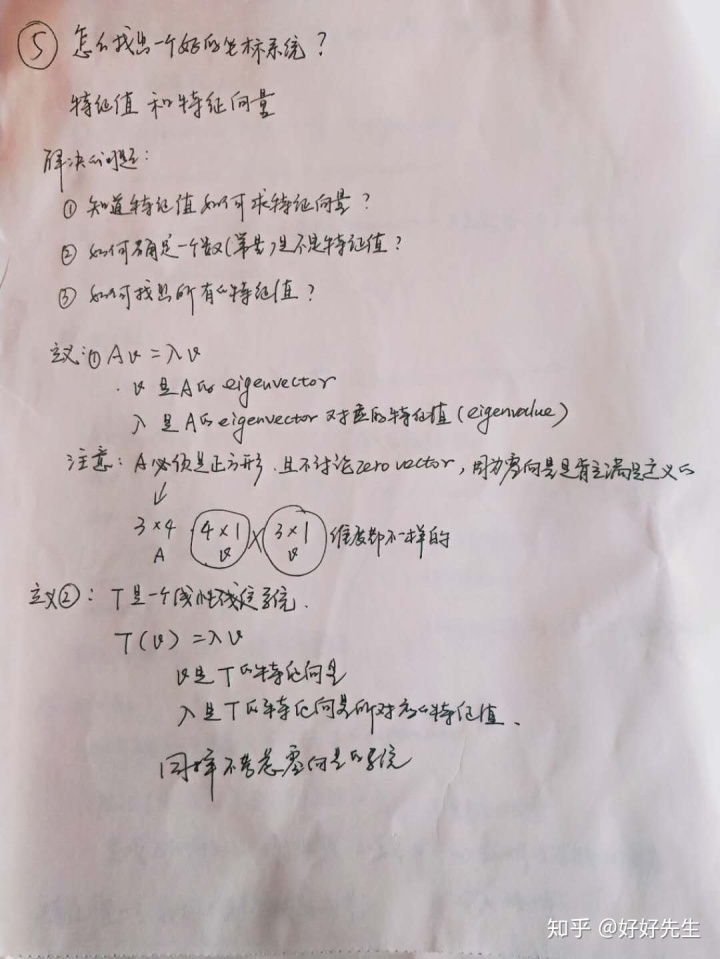 ⑤ 怎么找出一个好的坐标系统?
特征值和特征向量
解决的问题:
① 知道特征值如何求特征向量?
② 如何确定一个数(常量)是不是特征值?
③ 如何找出所有的特征值?
定义:① Av = λv
· v 是A的 eigenvector
λ 是A的 eigenvector 对应的特征值 (eigenvalue)
注意: A必须是正方形. 且不讨论zero vector, 因为零向量是肯定满足定义的
↓
3×4 4×1 × 3×1 维度都不一样的
A v v
定义②: T是一个线性系统.
T(v) = λv
v是T的特征向量
λ是T的特征向量所对应的特征值.
同样不考虑零向量的系统
知乎 @好好先生